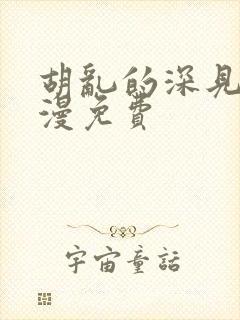 胡亂的深見
漫免費
宇宙童話